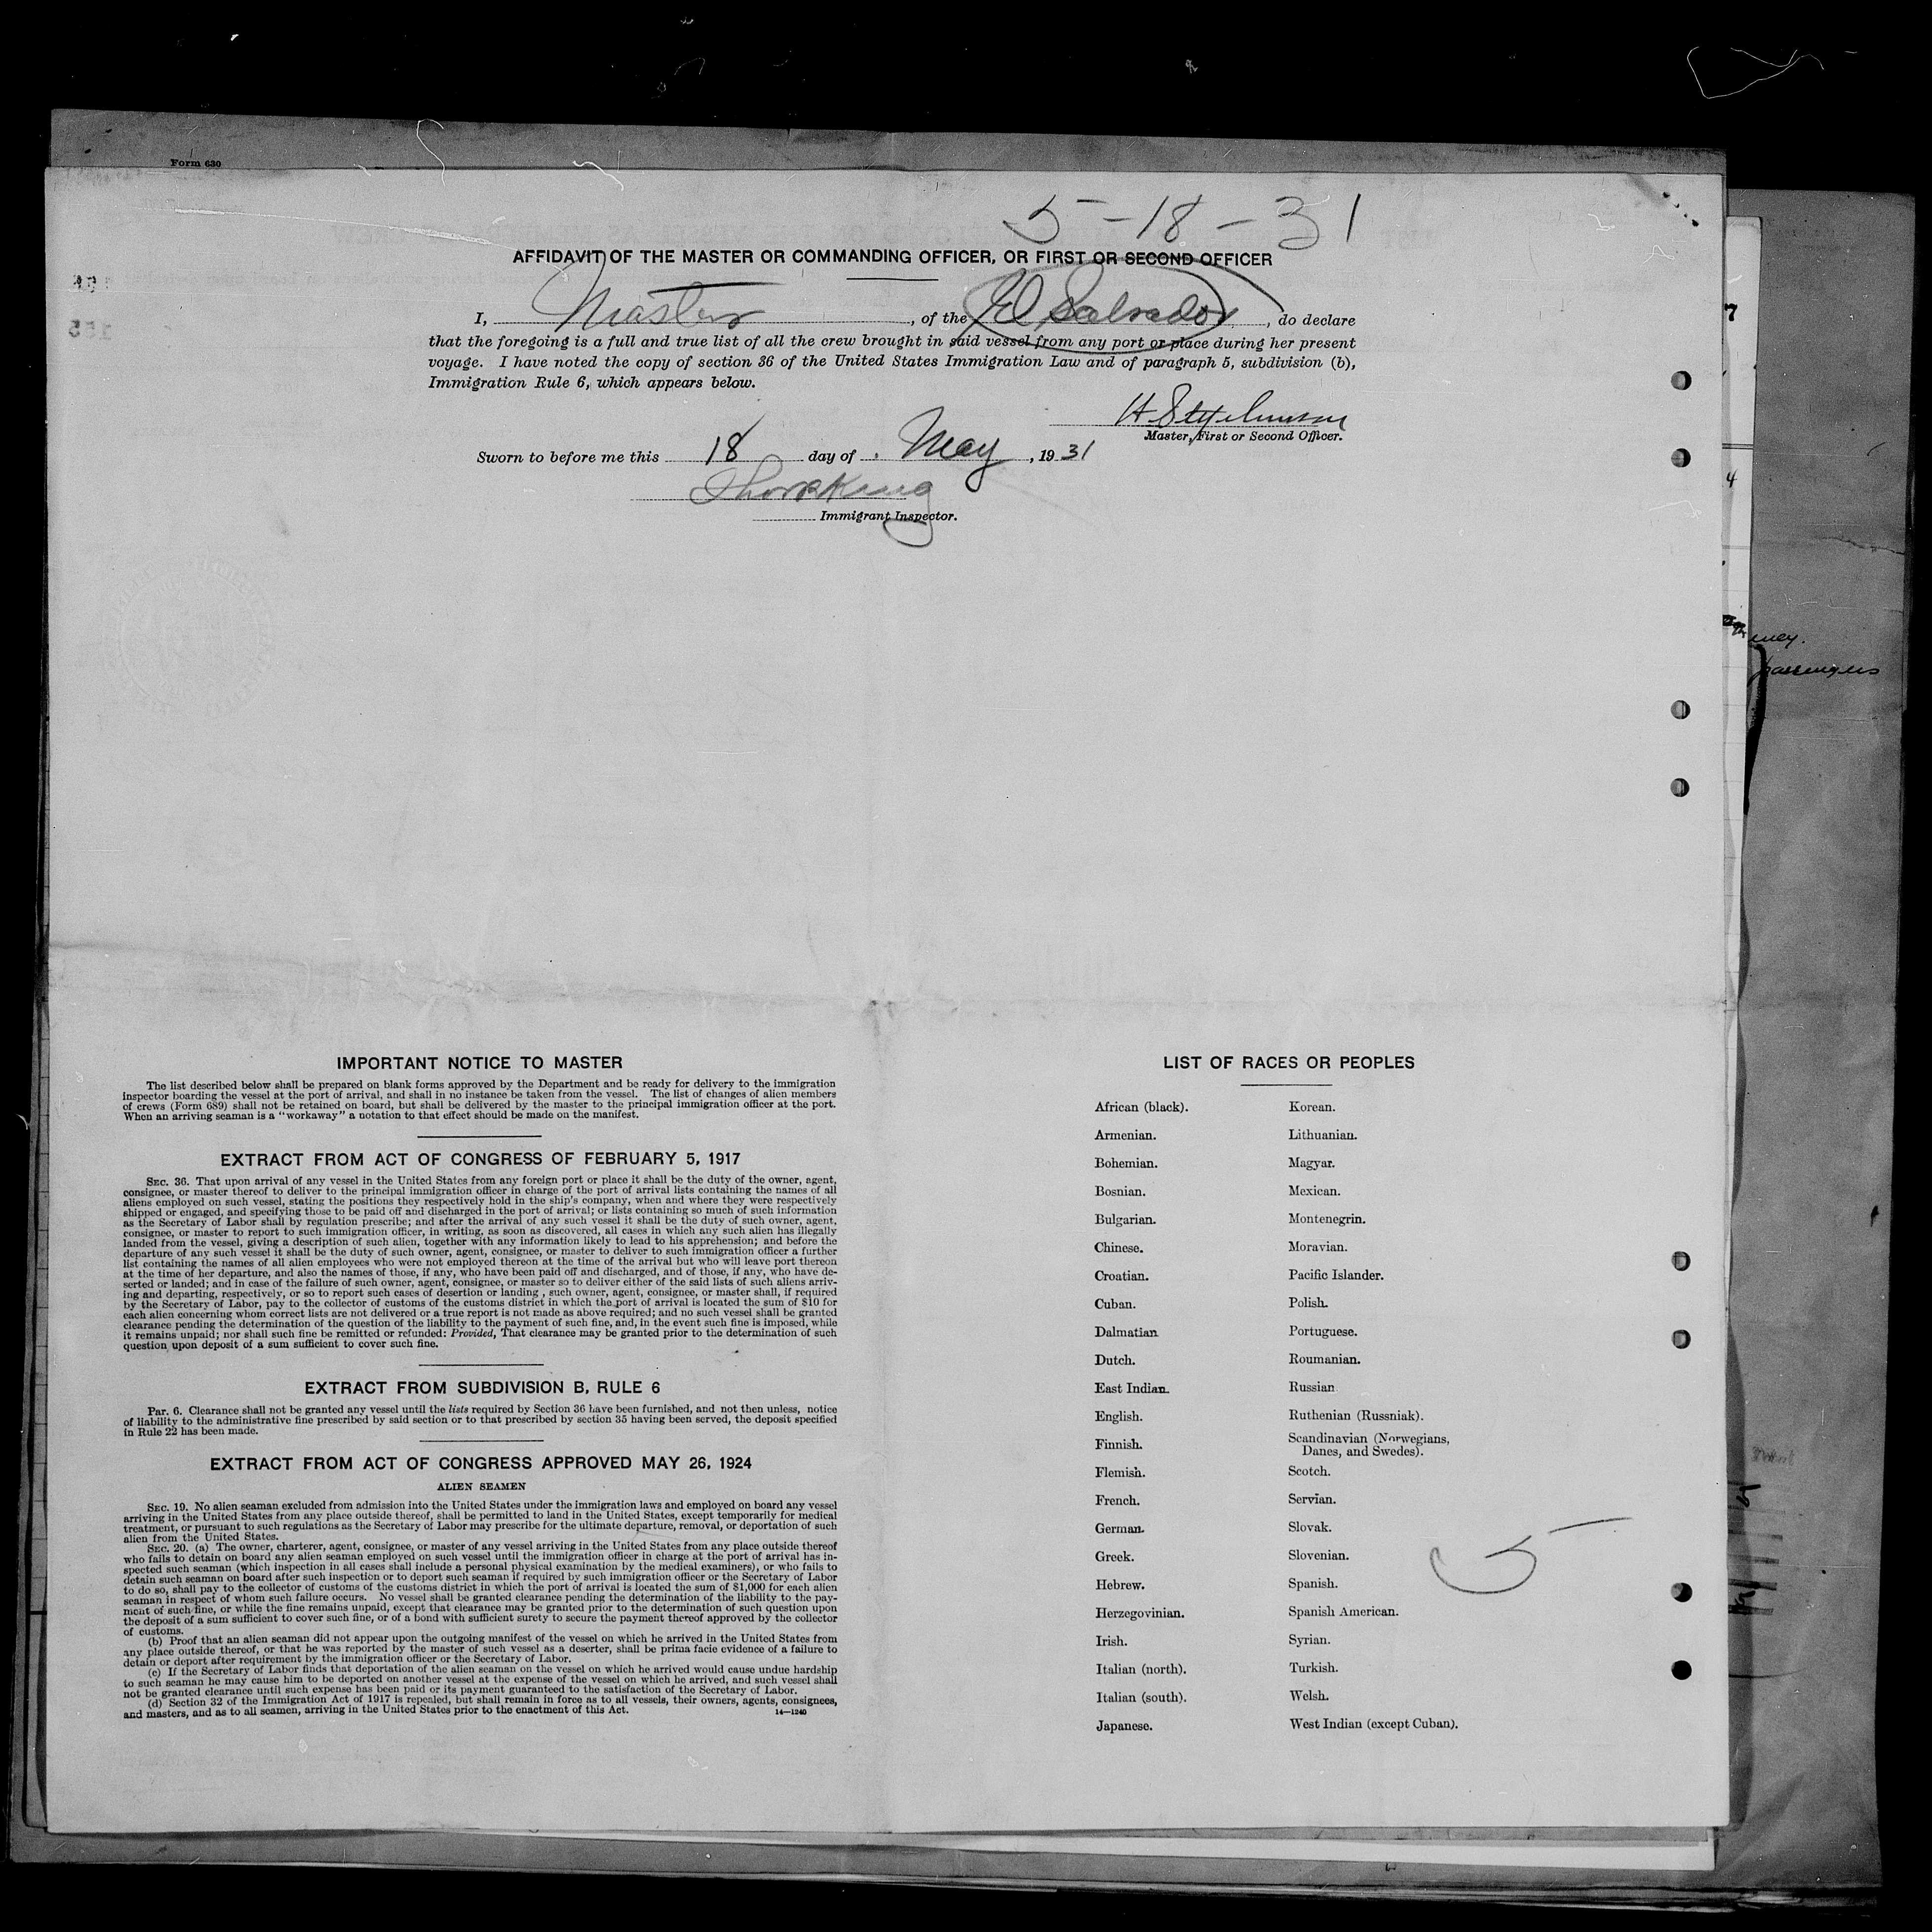 Form 630
5-18-31
AFFIDAVIT OF THE MASTER OR COMMANDING OFFICER, OR FIRST OR SECOND OFFICER
I, Master, of the El Salvador, do declare
that the foregoing is a full and true list of all the crew brought in said vessel from any port or place during her present
voyage. I have noted the copy of section 36 of the United States Immigration Law and of paragraph 5, subdivision (b),
Immigration Rule 6, which appears below.
Master, First or Second Officer.
Sworn to before me this 18 day of May, 1931
Immigrant Inspector.
IMPORTANT NOTICE TO MASTER
The list described below shall be prepared on blank forms approved by the Department and be ready for delivery to the immigration
inspector boarding the vessel at the port of arrival, and shall in no instance be taken from the vessel. The list of changes of alien members
of crews (Form 689) shall not be retained on board, but shall be delivered by the master to the principal immigration officer at the port.
When an arriving seaman is a "workaway" a notation to that effect should be made on the manifest.
EXTRACT FROM ACT OF CONGRESS OF FEBRUARY 5, 1917
SEC. 36. That upon arrival of any vessel in the United States from any foreign port or place it shall be the duty of the owner, agent,
consignee, or master thereof to deliver to the principal immigration officer in charge of the port of arrival lists containing the names of all
aliens employed on such vessel, stating the positions they respectively hold in the ship's company, when and where they were respectively
shipped or engaged, and specifying those to be paid off and discharged in the port of arrival; or lists containing so much of such information
as the Secretary of Labor shall by regulation prescribe; and after the arrival of any such vessel it shall be the duty of such owner, agent,
consignee, or master to report to such immigration officer, in writing, as soon as discovered, all cases in which any such alien has illegally
landed from the vessel, giving a description of such alien, together with any information likely to lead to his apprehension; and before the
departure of any such vessel it shall be the duty of such owner, agent, consignee, or master to deliver to such immigration officer a further
list containing the names of all alien employees who were not employed thereon at the time of the arrival but who will leave port thereon
at the time of her departure, and also the names of those, if any, who have been paid off and discharged, and of those, if any, who have de-
serted or landed; and in case of the failure of such owner, agent, consignee, or master so to deliver either of the said lists of such aliens arriv-
ing and departing, respectively, or so to report such cases of desertion or landing, such owner, agent, consignee, or master shall, if required
by the Secretary of Labor, pay to the collector of customs of the customs district in which the port of arrival is located the sum of $10 for
each alien concerning whom correct lists are not delivered or a true report is not made as above required; and no such vessel shall be granted
clearance pending the determination of the question of the liability to the payment of such fine, and, in the event such fine is imposed, while
it remains unpaid; nor shall such fine be remitted or refunded: Provided, That clearance may be granted prior to the determination of such
question upon deposit of a sum sufficient to cover such fine.
EXTRACT FROM SUBDIVISION B, RULE 6
Par. 6. Clearance shall not be granted any vessel until the lists required by Section 36 have been furnished, and not then unless, notice
of liability to the administrative fine prescribed by said section or to that prescribed by section 35 having been served, the deposit specified
in Rule 22 has been made.
EXTRACT FROM ACT OF CONGRESS APPROVED MAY 26, 1924
ALIEN SEAMEN
SEC. 19. No alien seaman excluded from admission into the United States under the immigration laws and employed on board any vessel
arriving in the United States from any place outside thereof, shall be permitted to land in the United States, except temporarily for medical
treatment, or pursuant to such regulations as the Secretary of Labor may prescribe for the ultimate departure, removal, or deportation of such
alien from the United States.
SEC. 20. (a) The owner, charterer, agent, consignee, or master of any vessel arriving in the United States from any place outside thereof
who fails to detain on board any alien seaman employed on such vessel until the immigration officer in charge at the port of arrival has in-
spected such seaman (which inspection in all cases shall include a personal physical examination by the medical examiners), or who fails to
detain such seaman on board after such inspection or to deport such seaman if required by such immigration officer or the Secretary of Labor
to do so, shall pay to the collector of customs of the customs district in which the port of arrival is located the sum of $1,000 for each alien
seaman in respect of whom such failure occurs. No vessel shall be granted clearance pending the determination of the liability to the pay-
ment of such fine, or while the fine remains unpaid, except that clearance may be granted prior to the determination of such question upon
the deposit of a sum sufficient to cover such fine, or of a bond with sufficient surety to secure the payment thereof approved by the collector
of customs.
(b) Proof that an alien seaman did not appear upon the outgoing manifest of the vessel on which he arrived in the United States from
any place outside thereof, or that he was reported by the master of such vessel as a deserter, shall be prima facie evidence of a failure to
detain or deport after requirement by the immigration officer or the Secretary of Labor.
(c) If the Secretary of Labor finds that deportation of the alien seaman on the vessel on which he arrived would cause undue hardship
to such seaman he may cause him to be deported on another vessel at the expense of the vessel on which he arrived, and such vessel shall
not be granted clearance until such expense has been paid or its payment guaranteed to the satisfaction of the Secretary of Labor.
(d) Section 32 of the Immigration Act of 1917 is repealed, but shall remain in force as to all vessels, their owners, agents, consignees,
and masters, and as to all seamen, arriving in the United States prior to the enactment of this Act.
14—1240
LIST OF RACES OR PEOPLES
African (black). Korean.
Armenian. Lithuanian.
Bohemian. Magyar.
Bosnian. Mexican.
Bulgarian. Montenegrin.
Chinese. Moravian.
Croatian. Pacific Islander.
Cuban. Polish.
Dalmatian Portuguese.
Dutch. Roumanian.
East Indian. Russian
English. Ruthenian (Russniak).
Finnish. Scandinavian (Norwegians,
Danes, and Swedes).
Flemish. Scotch.
French. Servian.
German. Slovak.
Greek. Slovenian.
Hebrew. Spanish.
Herzegovinian. Spanish American.
Irish. Syrian.
Italian (north). Turkish.
Italian (south). Welsh.
Japanese. West Indian (except Cuban).
5
7
4
passengers